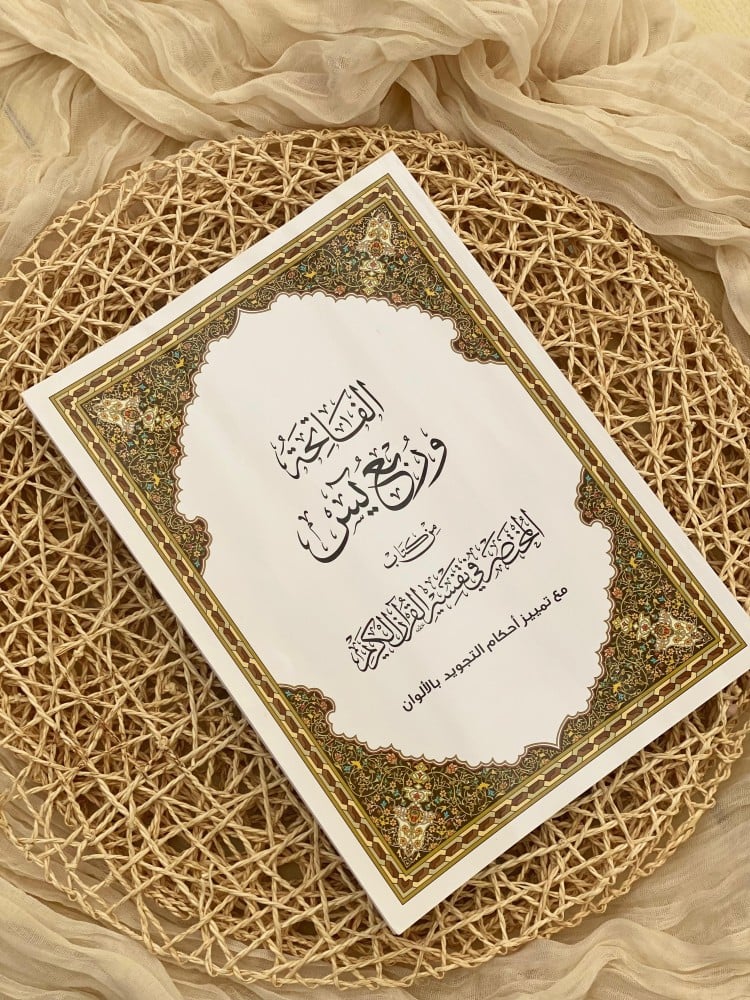 الفَاتِحَةُ
وَرُبعُ يٓسٓ
مِنْ كِتَابِ
المُختَصَر فِي تَفْسِيْر القُرْآن الكَرِيْم
مع تمييز أحكام التجويد بالألوان